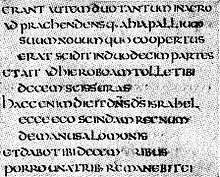 erantautemduotantuminagro
adprachendensq·ahiapallium
suumnouumquocoopertus
eratsciditinduodecimpartes
etaitadhieroboamtolletibi
decemscissuras
haecenimdicitdn̄sd̄sisrahel
ecceegoscindamregnum
demanusalomonis
etdabotibidecemtribus
porrounatribremanebitei